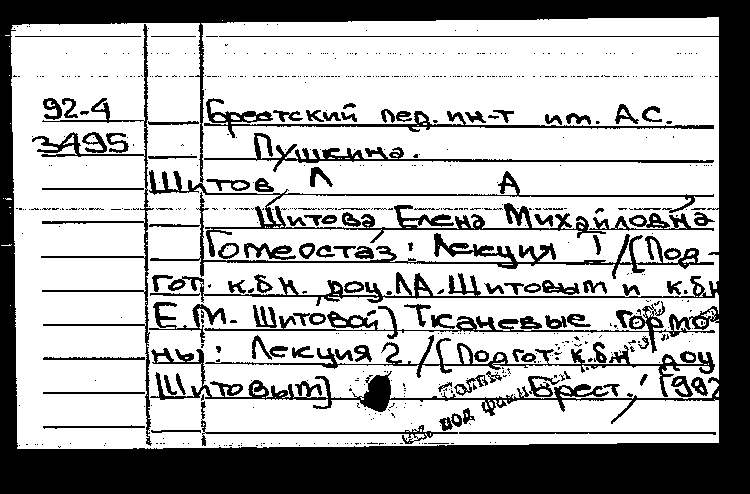 92-4 Брестский пед. ин-т им. А.С.
3495 Пушкина.
Шитов Л А
Шитова Елена Михайловна
Гомеостаз: Лекция 1 /[Под-
гот. к.б.н. доц. Л.А. Шитовым и к.б.н
Е.М. Шитовой] Тканевые гормо
ны: Лекция 2. /[Подгот. к.б.н доц
Шитовым] Брест, 1992
см. под